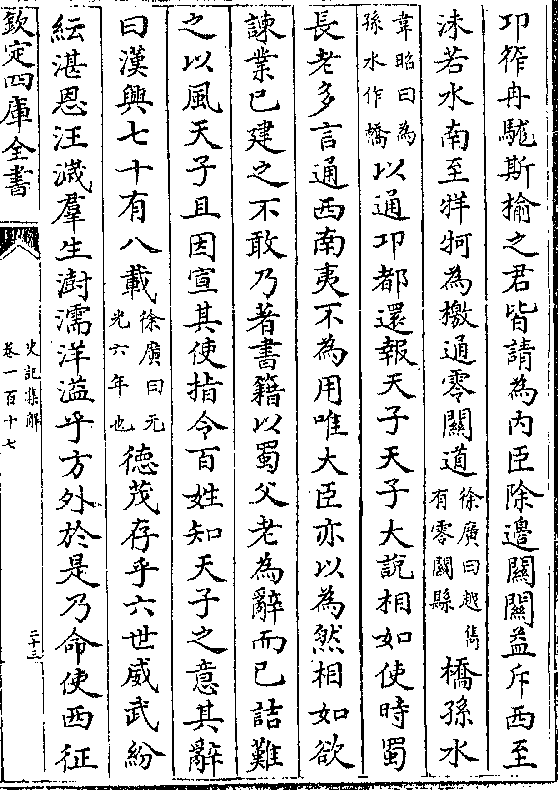 卭筰冉駹斯揄之君皆請為内臣除邊關關益斥西至
沬若水南至牂牁為檄通零關道徐廣曰越雋有零關縣橋孫水
韋昭曰為孫水作橋以通卭都還報天子天子大說相如使時蜀
長老多言通西南夷不為用唯大臣亦以為然相如欲
諫業已建之不敢乃著書籍以蜀父老為辭而已詰難
之以風天子且因宣其使指令百姓知天子之意其辭
曰漢興七十有八載徐廣曰元光六年也德茂存乎六世威武紛
紜湛恩汪濊羣生澍濡洋溢乎方外於是乃命使西征
欽定四庫全書
史記集解
卷一百十七
二十三